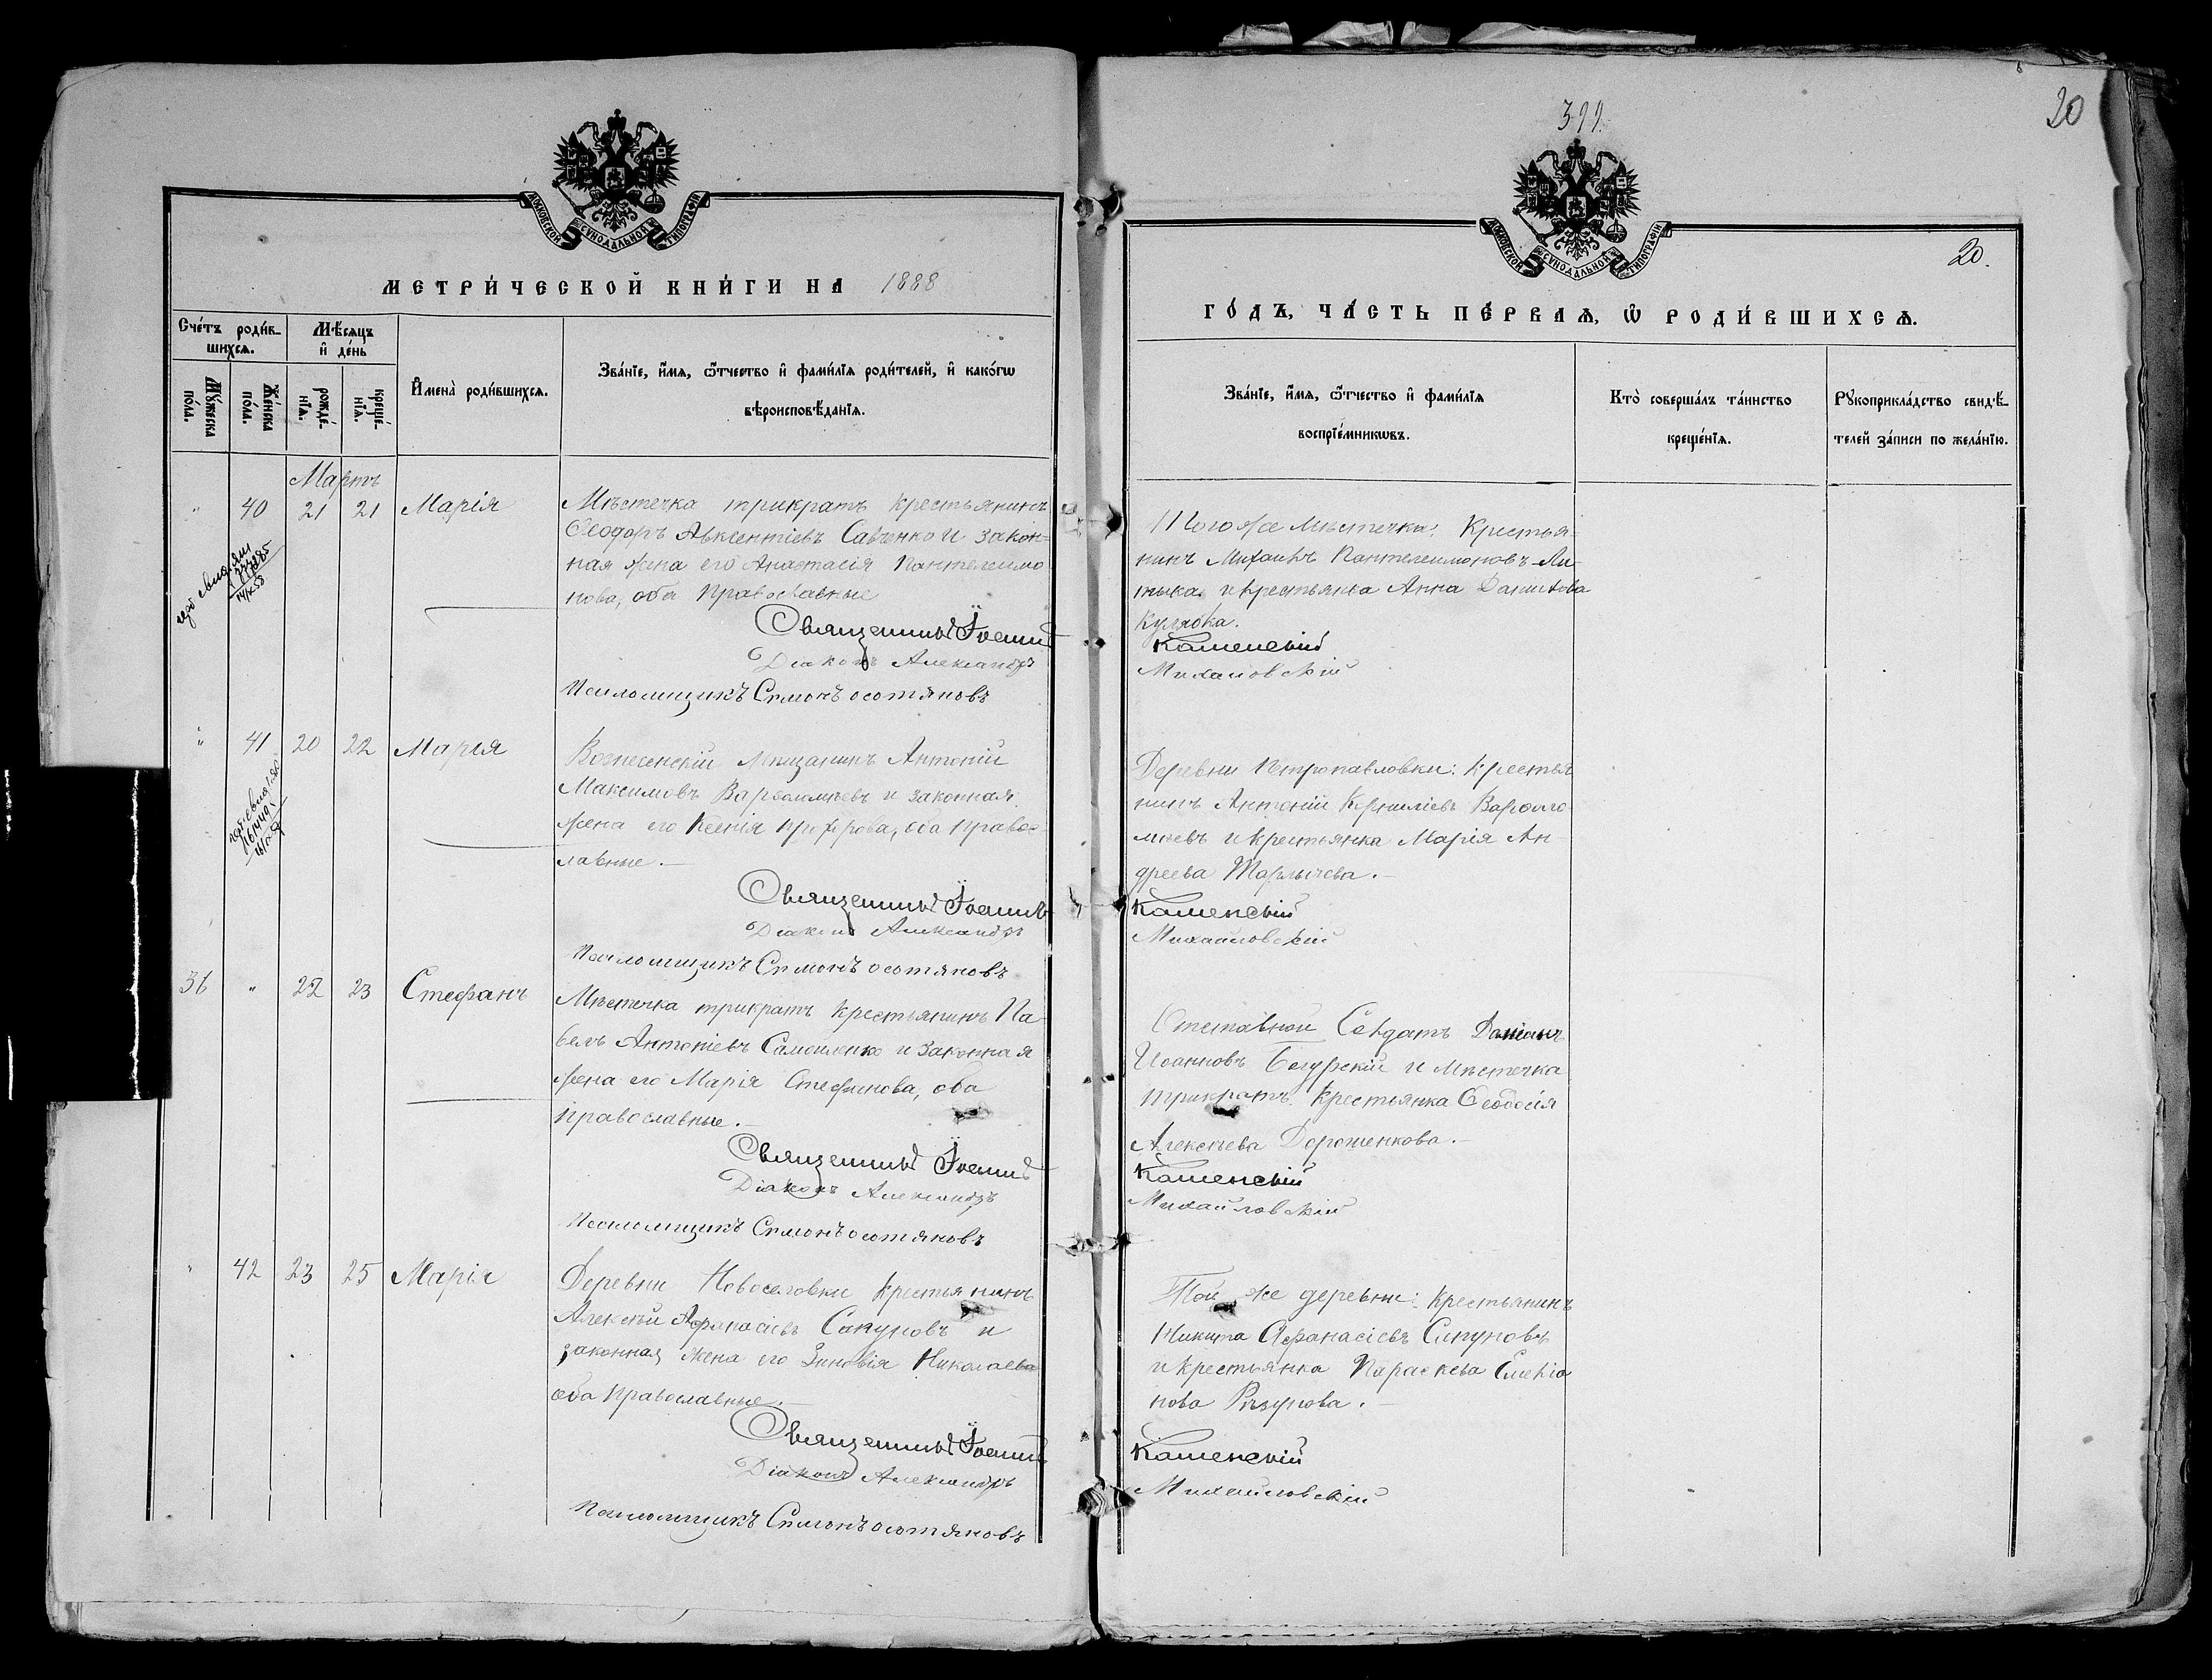 МОСКОВСКОЙ СѴНОДАЛЬНОЙ ТИПОГРАФІИ
МЕТРИ́ЧЕСКОЙ КНИ́ГИ НА 1888
Сче́тъ роди́в-
шихсѧ.
Мѣ́сѧцъ
и҆ де́нь
Мꙋ́жеска
по́ла.
Же́нска
по́ла.
рожде́-
нїѧ.
креще́-
нїѧ.
И҆мена̀ роди́вшихсѧ.
Зва́нїе, и҆́мѧ, ѻ҆́тчество и҆ фами́лїѧ роди́телей, и҆ како́гѡ
вѣроисповѣ́данїѧ.
Мартъ
" 40 21 21 Марія
Мѣстечка трикратъ крестьянинъ
Ѳеодоръ Авксентіевъ Савченко и закон-
ная жена его Анастасія Пантелеимо
нова, оба православные
Священникъ Іоаннъ
Діаконъ Александръ
Псаломщикъ Симонъ Осотяновъ
" 41 20 22 Марія
Вознесенскій мѣщанинъ Антоній
Максимовъ Варѳоломѣевъ и законная
жена его Ксенія, оба право-
славные.
Священникъ Іоаннъ
Діаконъ Александръ
Псаломщикъ Симонъ Осотяновъ
36 " 22 23 Стефанъ
Мѣстечка трикратъ крестьянинъ Па
велъ Антоніевъ Самойленко и законная
жена его Марія Стефанова, оба
православные.
Священникъ Іоаннъ
Діаконъ Александръ
Псаломщикъ Симонъ Осотяновъ
" 42 23 25 Марія
Деревни Новоселовки крестьянинъ
Алексѣй Аѳанасіевъ Сапуновъ и
законная жена его Зиновія Николаева
оба православные.
Священникъ Іоаннъ
Діаконъ Александръ
Псаломщикъ Симонъ Осотяновъ
399.
20
МОСКОВСКОЙ СѴНОДАЛЬНОЙ ТИПОГРАФІИ
20.
ГО́ДЪ, ЧА́СТЬ ПЕ́РВАѦ, Ѡ҆ РОДИ́ВШИХСѦ.
Зва́нїе, и҆́мѧ, ѻ҆́тчество и҆ фами́лїѧ
воспрїе́мникѡвъ.
Кто̀ соверша́лъ та́инство
креще́нїѧ.
Рꙋкоприкла́дство свидѣ́-
телей за́писи по жела́нїю.
Того же мѣстечка: крестья-
нинъ Михаилъ Пантелеимоновъ Ли-
тыка и крестьянка Анна Данилова
Кулябка.
Каменскій
Михайловскій
Деревни Петропавловки: крестья
нинъ Антоній Корнилієвъ Варѳоло-
мѣевъ и крестьянка Марія Ан-
дреева
Каменскій
Михайловскій
Отставной Солдатъ Даміанъ
Иоанновъ и мѣстечка
трикратъ крестьянка Ѳеодосія
Алексѣева Дорошенкова.
Каменскій
Михайловскій
Той же деревни: крестьянинъ
Никита Аѳанасіевъ Сапуновъ
и крестьянка Параскева Емеліа
нова Рѣзунова.
Каменскій
Михайловскій